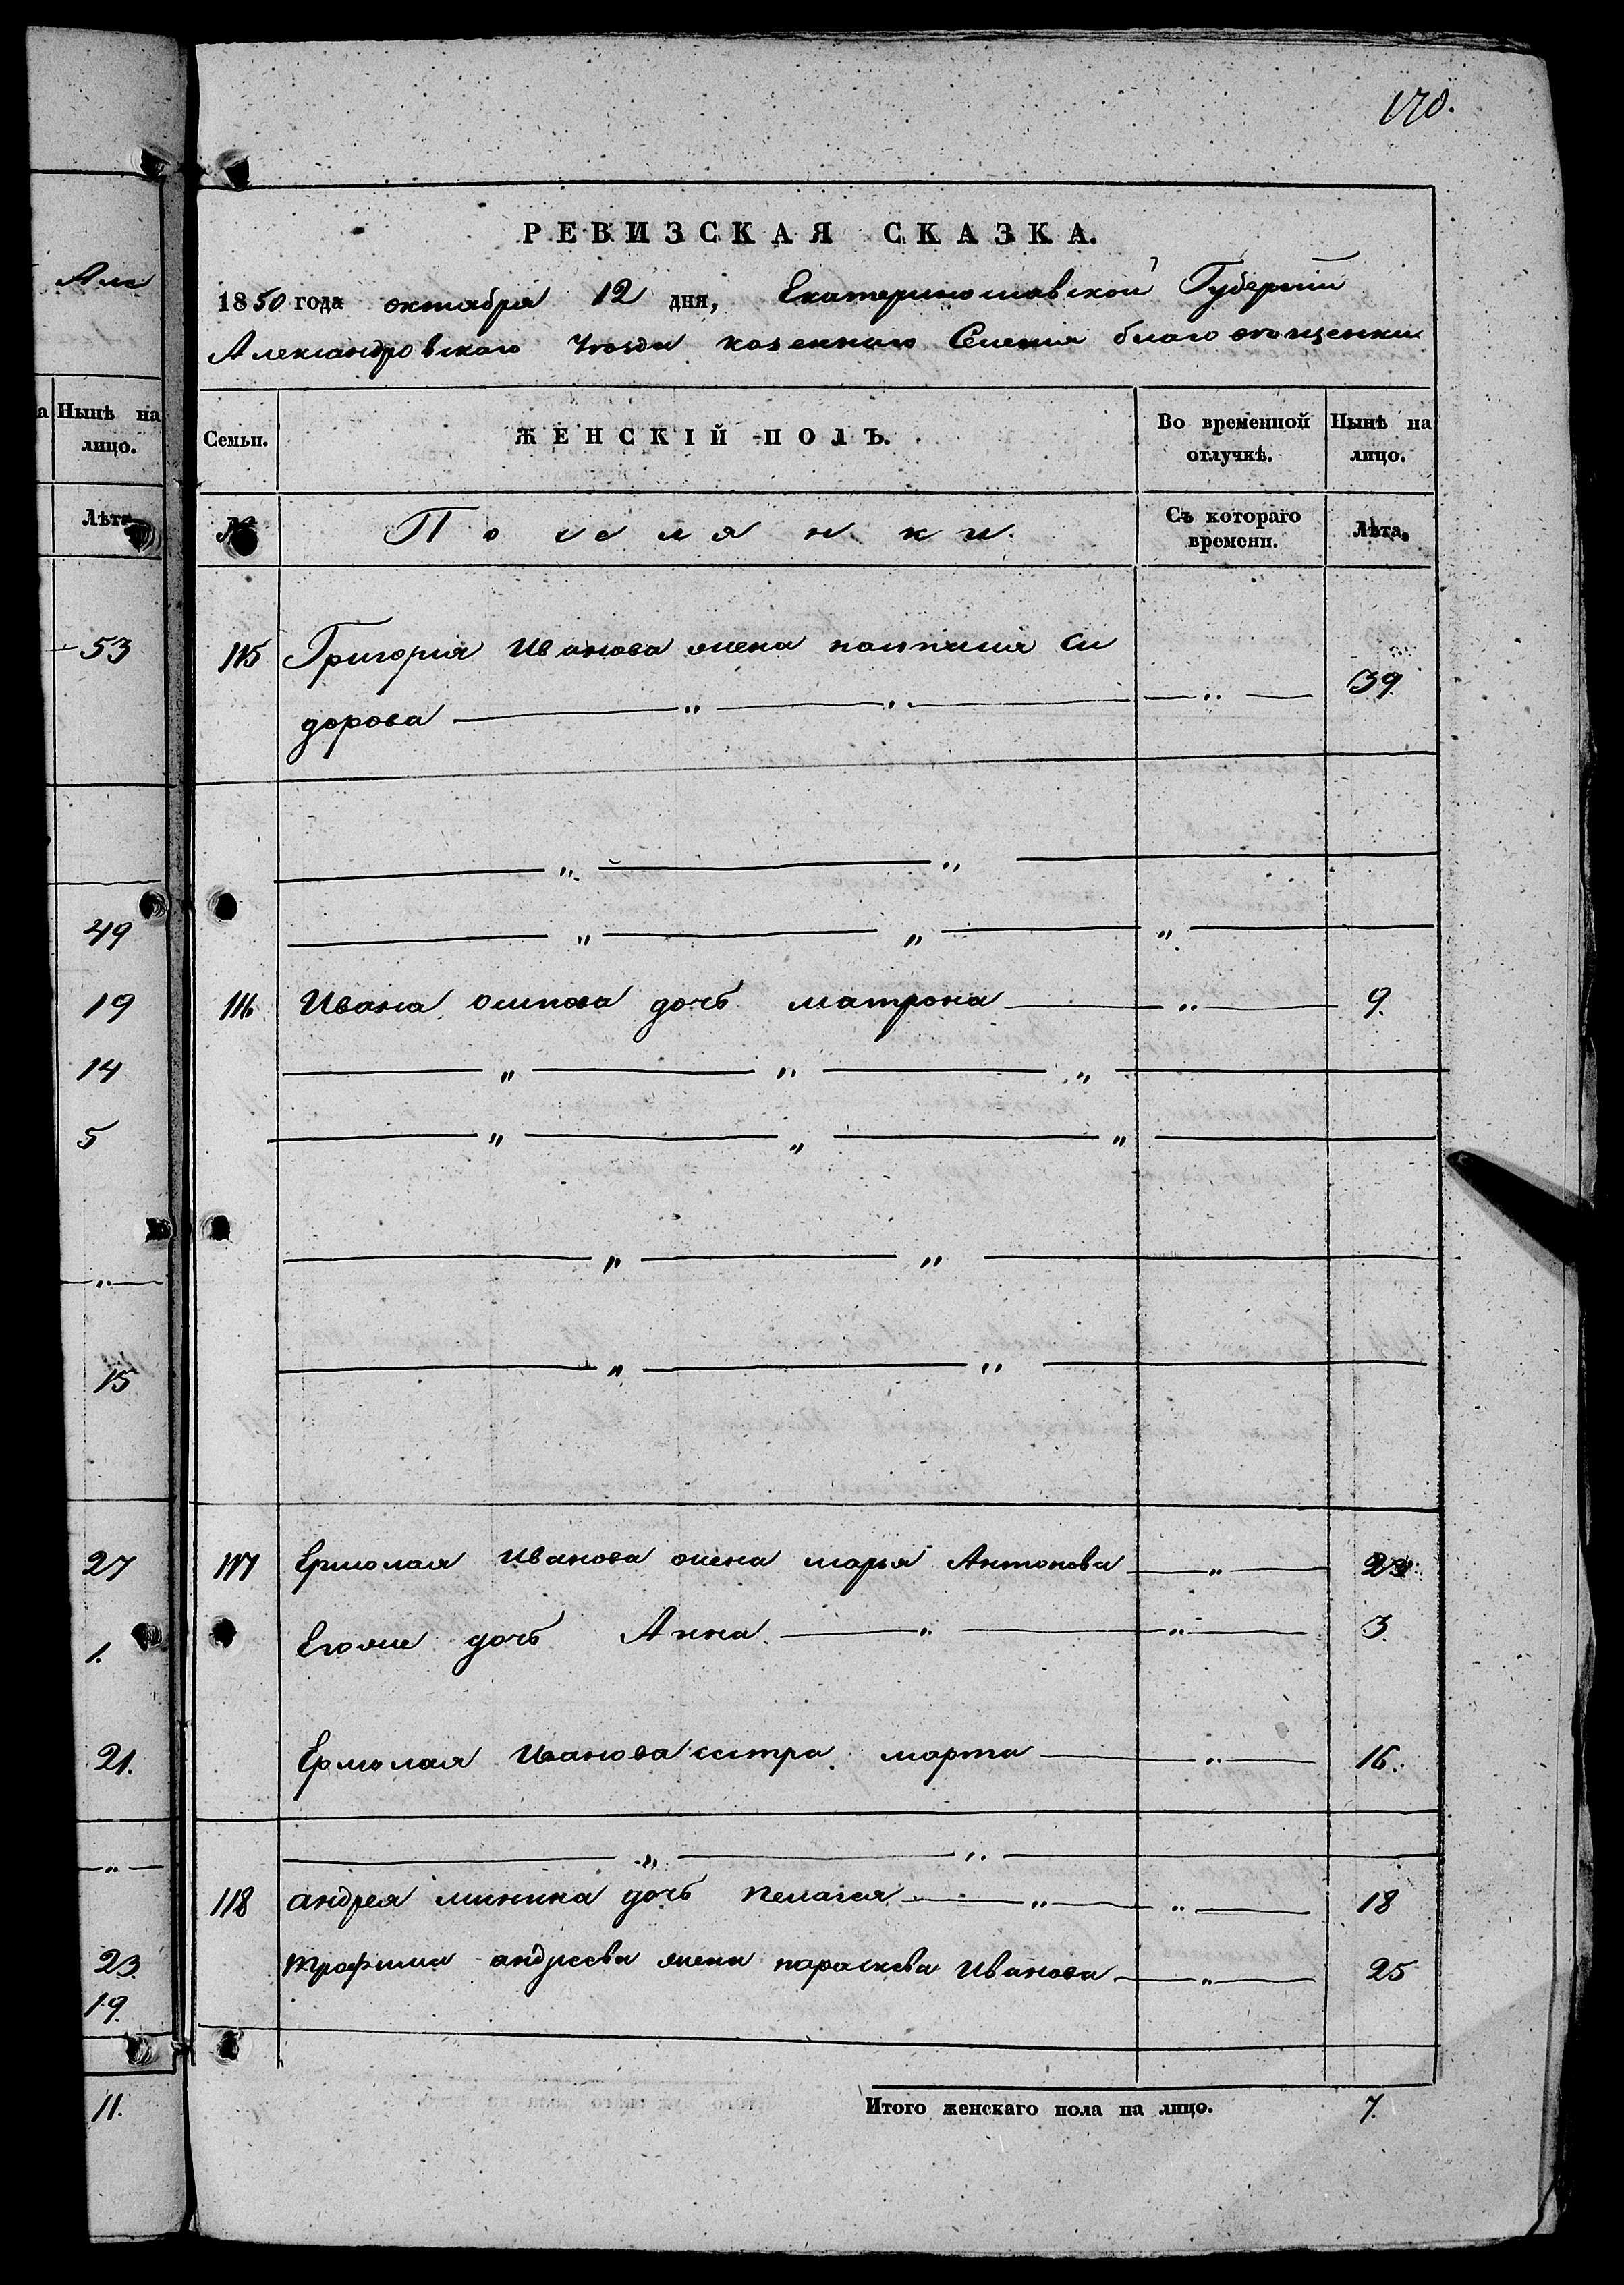 170.
РЕВИЗСКАЯ СКАЗКА.
1850 года октября 12 дня, Екатеринославской Губернии
Александровского Уезда казенного Селения благовещенки
Семьи. ЖЕНСКІЙ ПОЛЪ. Во временной отлучкѣ. Нынѣ на лицо.
№ Поселянки. Съ котораго времени. Лѣта.
115 Григория Иванова жена Си
дорова — " — " — " — 39
116 Ивана осипова дочь матрона — " — 9.
117 Ермолая Иванова жена марья Антонова — " — 23
Егоже дочь Анна — " — " — 3.
Ермолая Иванова сестра марта — " — 16.
118 андрея минина дочь пелагея — " — " — 18
трофима андреева жена параскева Иванова — " — 25
Итого женскаго пола на лицо. 7.
Нынѣ на
лицо.
Лѣта
53
49
19
14
5
15
27
1.
21.
23.
19.
11.